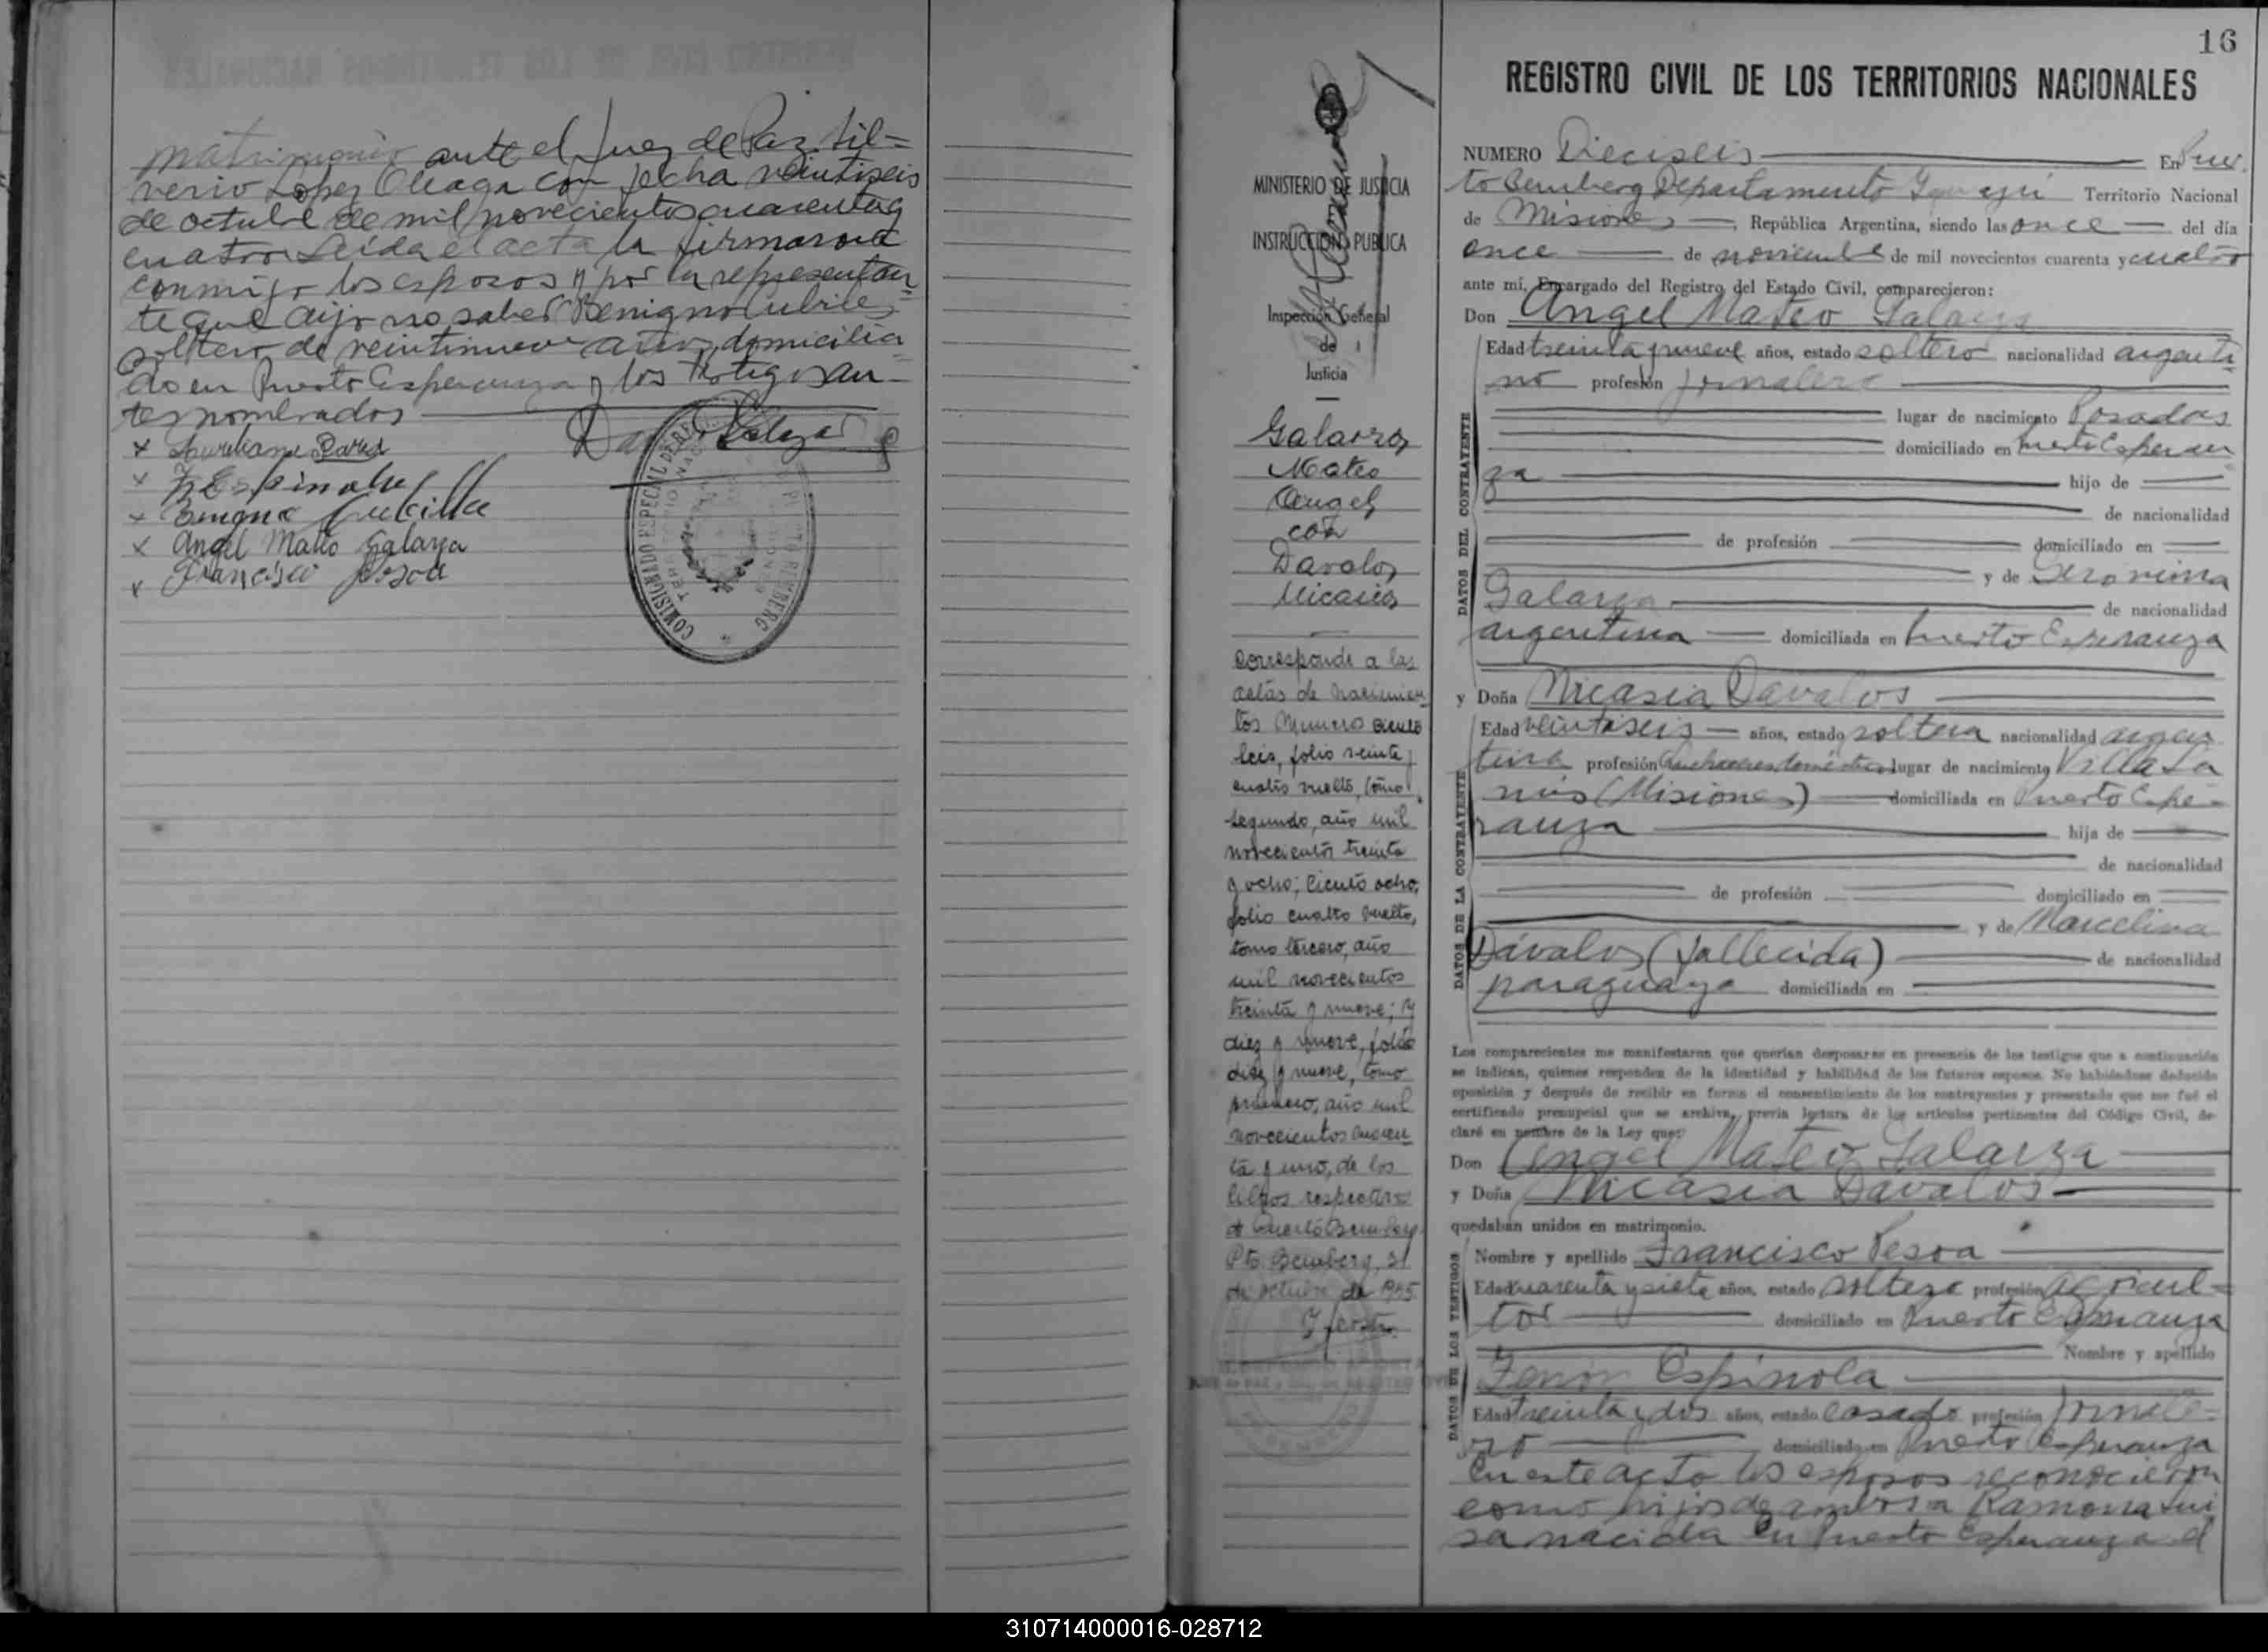 matrimonio ante el Juez de Paz Sil=
verio Lopez Oleaga con fecha veintiseis
de octubre de mil novecientos cuarenta y
cuatro. Leida el acta la firmaron
conmigo los esposos y por la representan=
te que dijo no saber Benigno Cubilla,
soltero de veintinueve años, domicilia
do en Puerto Esperanza y los testigos an-
tes nombrados
x Aureliano
x F Espinola
x Cubilla
x Angel Mateo Galarza
x Francisco Pesoa
COMISIONADO ESPECIAL DE
BEMBERG
16
REGISTRO CIVIL DE LOS TERRITORIOS NACIONALES
MINISTERIO DE JUSTICIA
INSTRUCCION PUBLICA
Inspección General
de
Justicia
Galarza
Mateo
Angel
con
Davalos
Nicasia
Corresponde a las
actas de nacimien-
tos número ciento
seis, folio veinte y
cuatro vuelto, tomo
segundo, año mil
novecientos treinta
y ocho; ciento ocho,
folio cuatro vuelto,
tomo tercero, año
mil novecientos
treinta y nueve; y
diez y nueve, folio
diez y nueve, tomo
primero, año mil
novecientos cuaren
ta y uno, de los
libros respectivos
de Puerto Bemberg
Pto. Bemberg, 31
de octubre de 1955
NUMERO Dieciseis En Puer
to Bemberg Departamento Iguazú Territorio Nacional
de Misiones República Argentina, siendo las once del día
once de noviembre de mil novecientos cuarenta y cuatro
ante mí, Encargado del Registro del Estado Civil, comparecieron:
Don Angel Mateo Galarza
DATOS DEL CONTRAYENTE
Edad treinta y nueve años, estado soltero nacionalidad argenti
no profesión jornalero
lugar de nacimiento Posadas
domiciliado en Puerto Esperan
za hijo de
de nacionalidad
de profesión domiciliado en
y de Geronima
Galarza de nacionalidad
argentina domiciliada en Puerto Esperanza
y Doña Nicasia Davalos
DATOS DE LA CONTRAYENTE
Edad veintiseis años, estado soltera nacionalidad argen
tina profesión quehaceres domésticos lugar de nacimiento Villa La
nús (Misiones) domiciliada en Puerto Espe-
ranza hija de
de nacionalidad
de profesión domiciliado en
y de Marcelina
Dávalos (fallecida) de nacionalidad
paraguaya domiciliada en
Los comparecientes me manifestaron que querían desposarse en presencia de los testigos que a continuación
se indican, quienes responden de la identidad y habilidad de los futuros esposos. No habiéndose deducido
oposición y después de recibir en forma el consentimiento de los contrayentes y presentado que me fué el
certificado prenupcial que se archiva, previa lectura de los artículos pertinentes del Código Civil, de-
claré en nombre de la Ley que:
Don Angel Mateo Galarza
y Doña Nicasia Davalos
quedaban unidos en matrimonio.
DATOS DE LOS TESTIGOS
Nombre y apellido Francisco Pesoa
Edad cuarenta y siete años, estado soltero profesión agricul=
tor domiciliado en Puerto Esperanza
Nombre y apellido
Fenón Espínola
Edad treinta y dos años, estado casado profesión jornale=
ro domiciliado en Puerto Esperanza
En este acto los esposos reconocieron
como hijos de ambos a Ramona Lui
sa nacida en Puerto Esperanza el
310714000016-028712